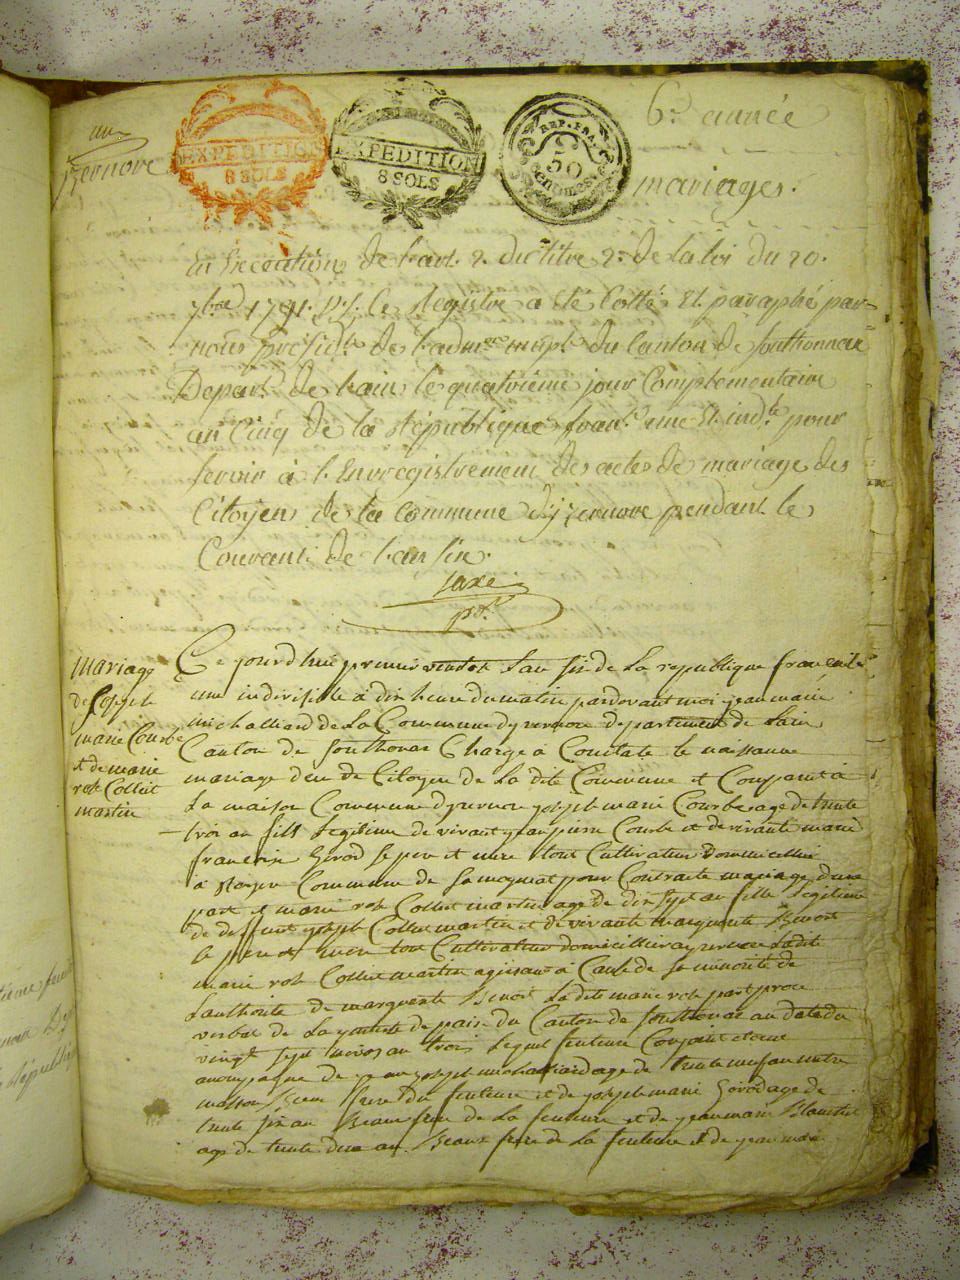 an
Izernore
EXPEDITION
8 SOLS
EXPEDITION
8 SOLS
REP. FRA.
50
CENTIMES
6.e année
mariages.
En Execution de l'art. 2. du titre 2. de la loi du 20.
7bre 1792. le Registre a été Cotté Et paraphé par
nous présidt. de l'admon. munple. du Canton de Sonthonnax
Depart. de l'ain le quatrième jour Complementaire
an Cinq de la République franc. une Et indle. pour
servir à l'Enregistrement des actes de mariage des
Citoyens de la Commune d'yzernore pendant le
Courant de l'an six.
pdt.
mariage
de Joseph
marie Courbe
et de marie
rose Collet
martin
Ce jourdhuit premier vendre. lan six de La republique francaise
une indivisible a dix heure du matin pardevant moi jean marie
michalliard de La Commune dyzernore departement de Lain
Canton de Sonthonax Charge a Constate le naissanne
mariage de Citoyen de La dite Commune et Comparet a
La maison Commune dyzernore joseph marie Courbe age de trente
troi an fils Legitime de vivant jean pierre Courbe et de vivante marie
francoise Girod se pere et mere tout Cultivateur domicillié
a Commune de Samognat pour Contracte mariage dune
part et marie rose Collet martin age de dix sept an fille Legitime
de deffunt joseph Collet martin et de vivante marguerite Benoit
se pere et mere tout Cultivateur domicillié a yzernore Ladite
marie rose Collet martin agissant a Cause de sa minorité de
Lauthorité de marguerite Benoit Ladite marie rose part proce
verbal de La justice de paix du Canton de Sonthonax au date du
vingt sept nivos an troi Lequel futeure Conjoint etane
acompagne de jean joseph michalliard age de trente neuf an
masson Beau frere du futeure et de joseph marie Girod age de
trente six an Beau frere de La futeure et de jean marie Blanchet
age de trente deux an Beaux frere de La futeure et de jean marie